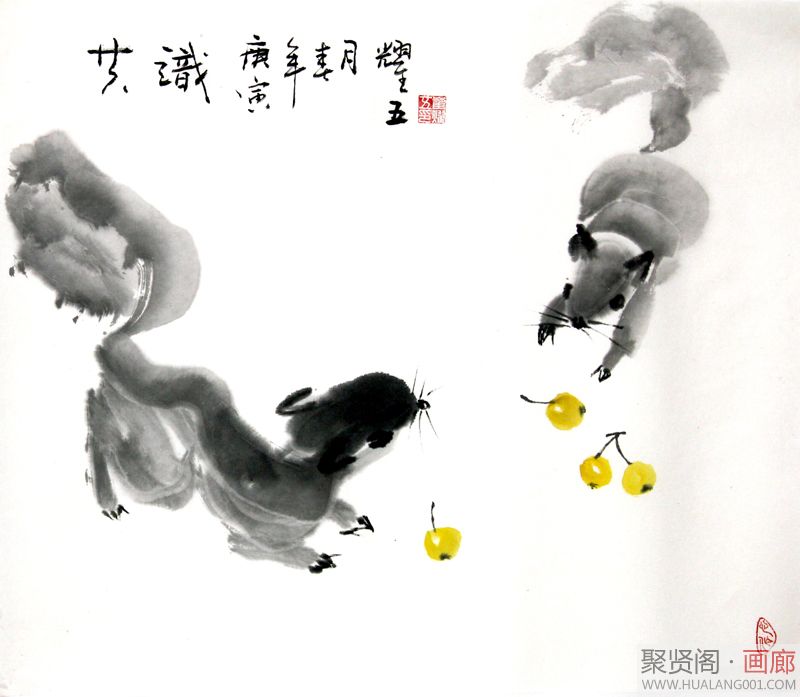 共識 庚寅年春月 耀五
聚贤阁·画廊
WWW.HUALANG001.COM